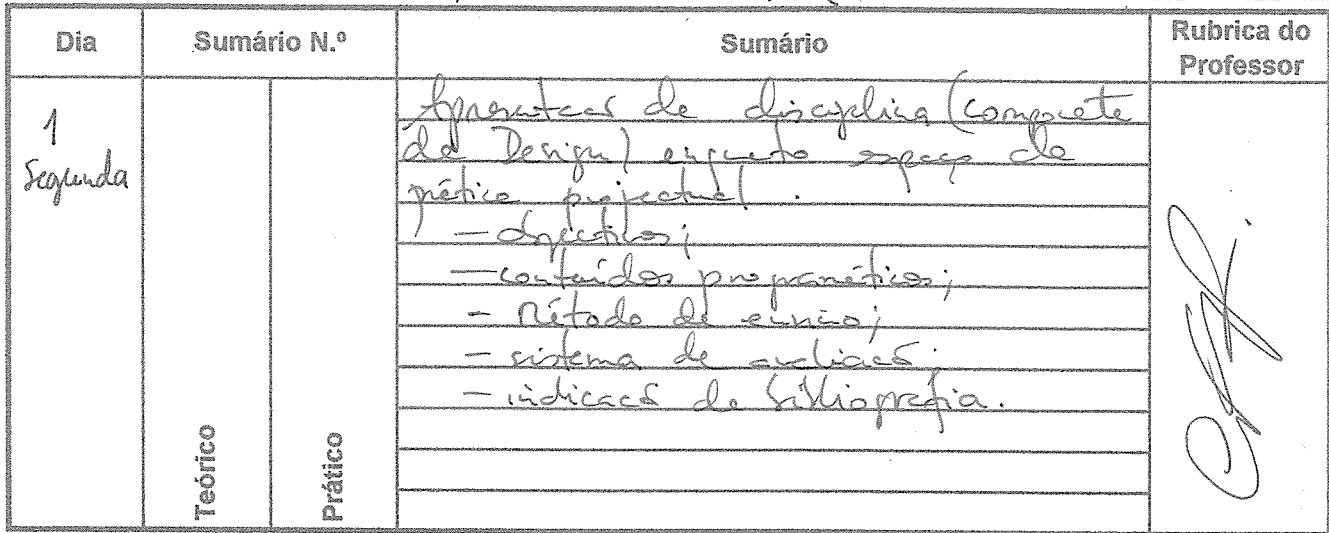 Dia Sumário N.º Sumário Rubrica do Professor
1
Segunda
Teórico
Prático
Apresentação da disciplina (componente
de Design) enquanto espaço de
prática projectual.
- objectivos;
- conteúdos programáticos;
- Método de ensino;
- sistema de avaliação;
- indicação de bibliografia.